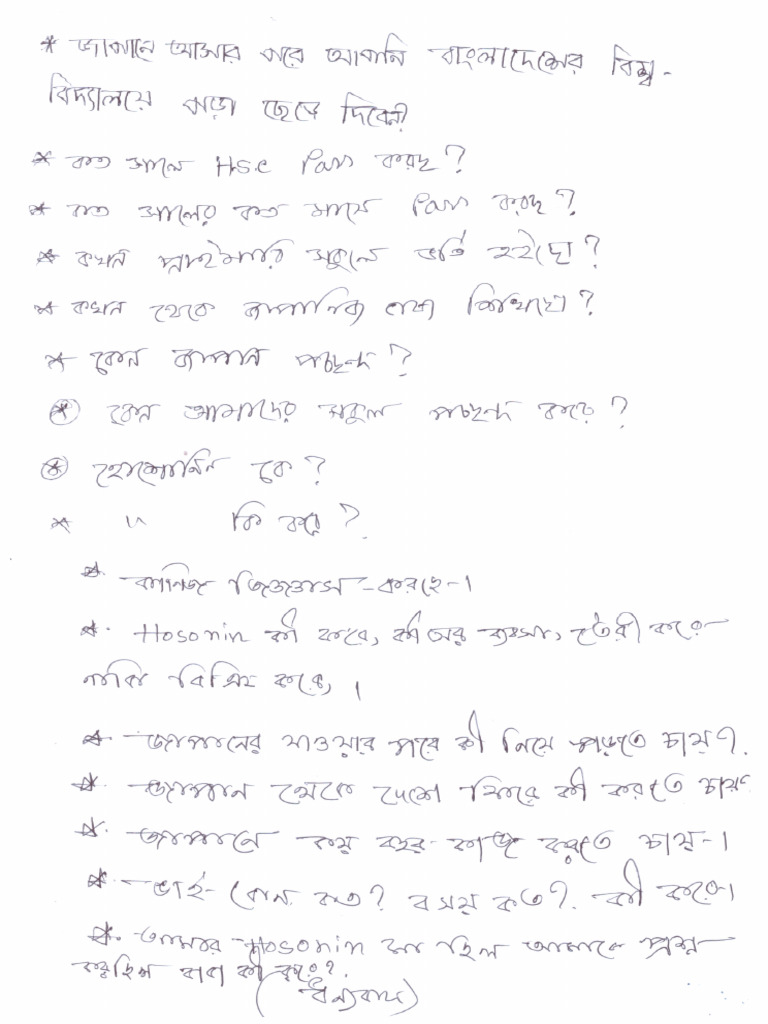 * জাপানে আসার পরে আপনি বাংলাদেশের বিশ্ব-
বিদ্যালয়ে পড়া ছেড়ে দিবেন?
* কত সালে H.s.c Pass করছ?
* কত সালের কত মাসে Pass করছ?
* কখন প্রাইমারি স্কুলে ভর্তি হইছো?
* কখন থেকে জাপানিজ ভাষা শিখিছো?
* কেন জাপান পছন্দ?
* কেন আমাদের স্কুল পছন্দ করে?
* হোশোনিন কে?
* " কি করে?
* জিজ্ঞাস করছে।
* Hosonin কী করে, কীসের ব্যবসা, তৈরী করে
নাকি বিক্রি করে, ।
* জাপানের যাওয়ার পরে কী নিয়ে পড়তে চায়?
* জাপান থেকে দেশে ফিরে কী করতে চায়?
* জাপানে কয় বছর কাজ করতে চায়।
* ভাই-বোন কত? বয়স কত? কী করে।
* আমার Hosonin মা ছিল আমাকে প্রশ্ন
করছিল বাবা কী করে?
(ধন্যবাদ)